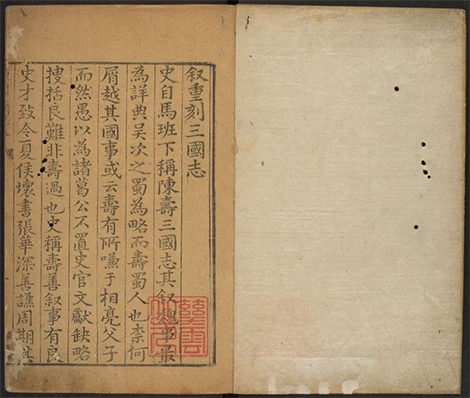 叙重刻三國志
史自馬班下稱陳壽三國志其叙魏事最
為詳典吳次之蜀為略而壽蜀人也柰何
屑越其國事或云壽有所嗛于相亮父子
而然愚以為諸葛公不置史官文獻缺略
搜括良難非壽過也史稱壽善叙事有良
史才致令夏侯壞書張華深善譙周期其